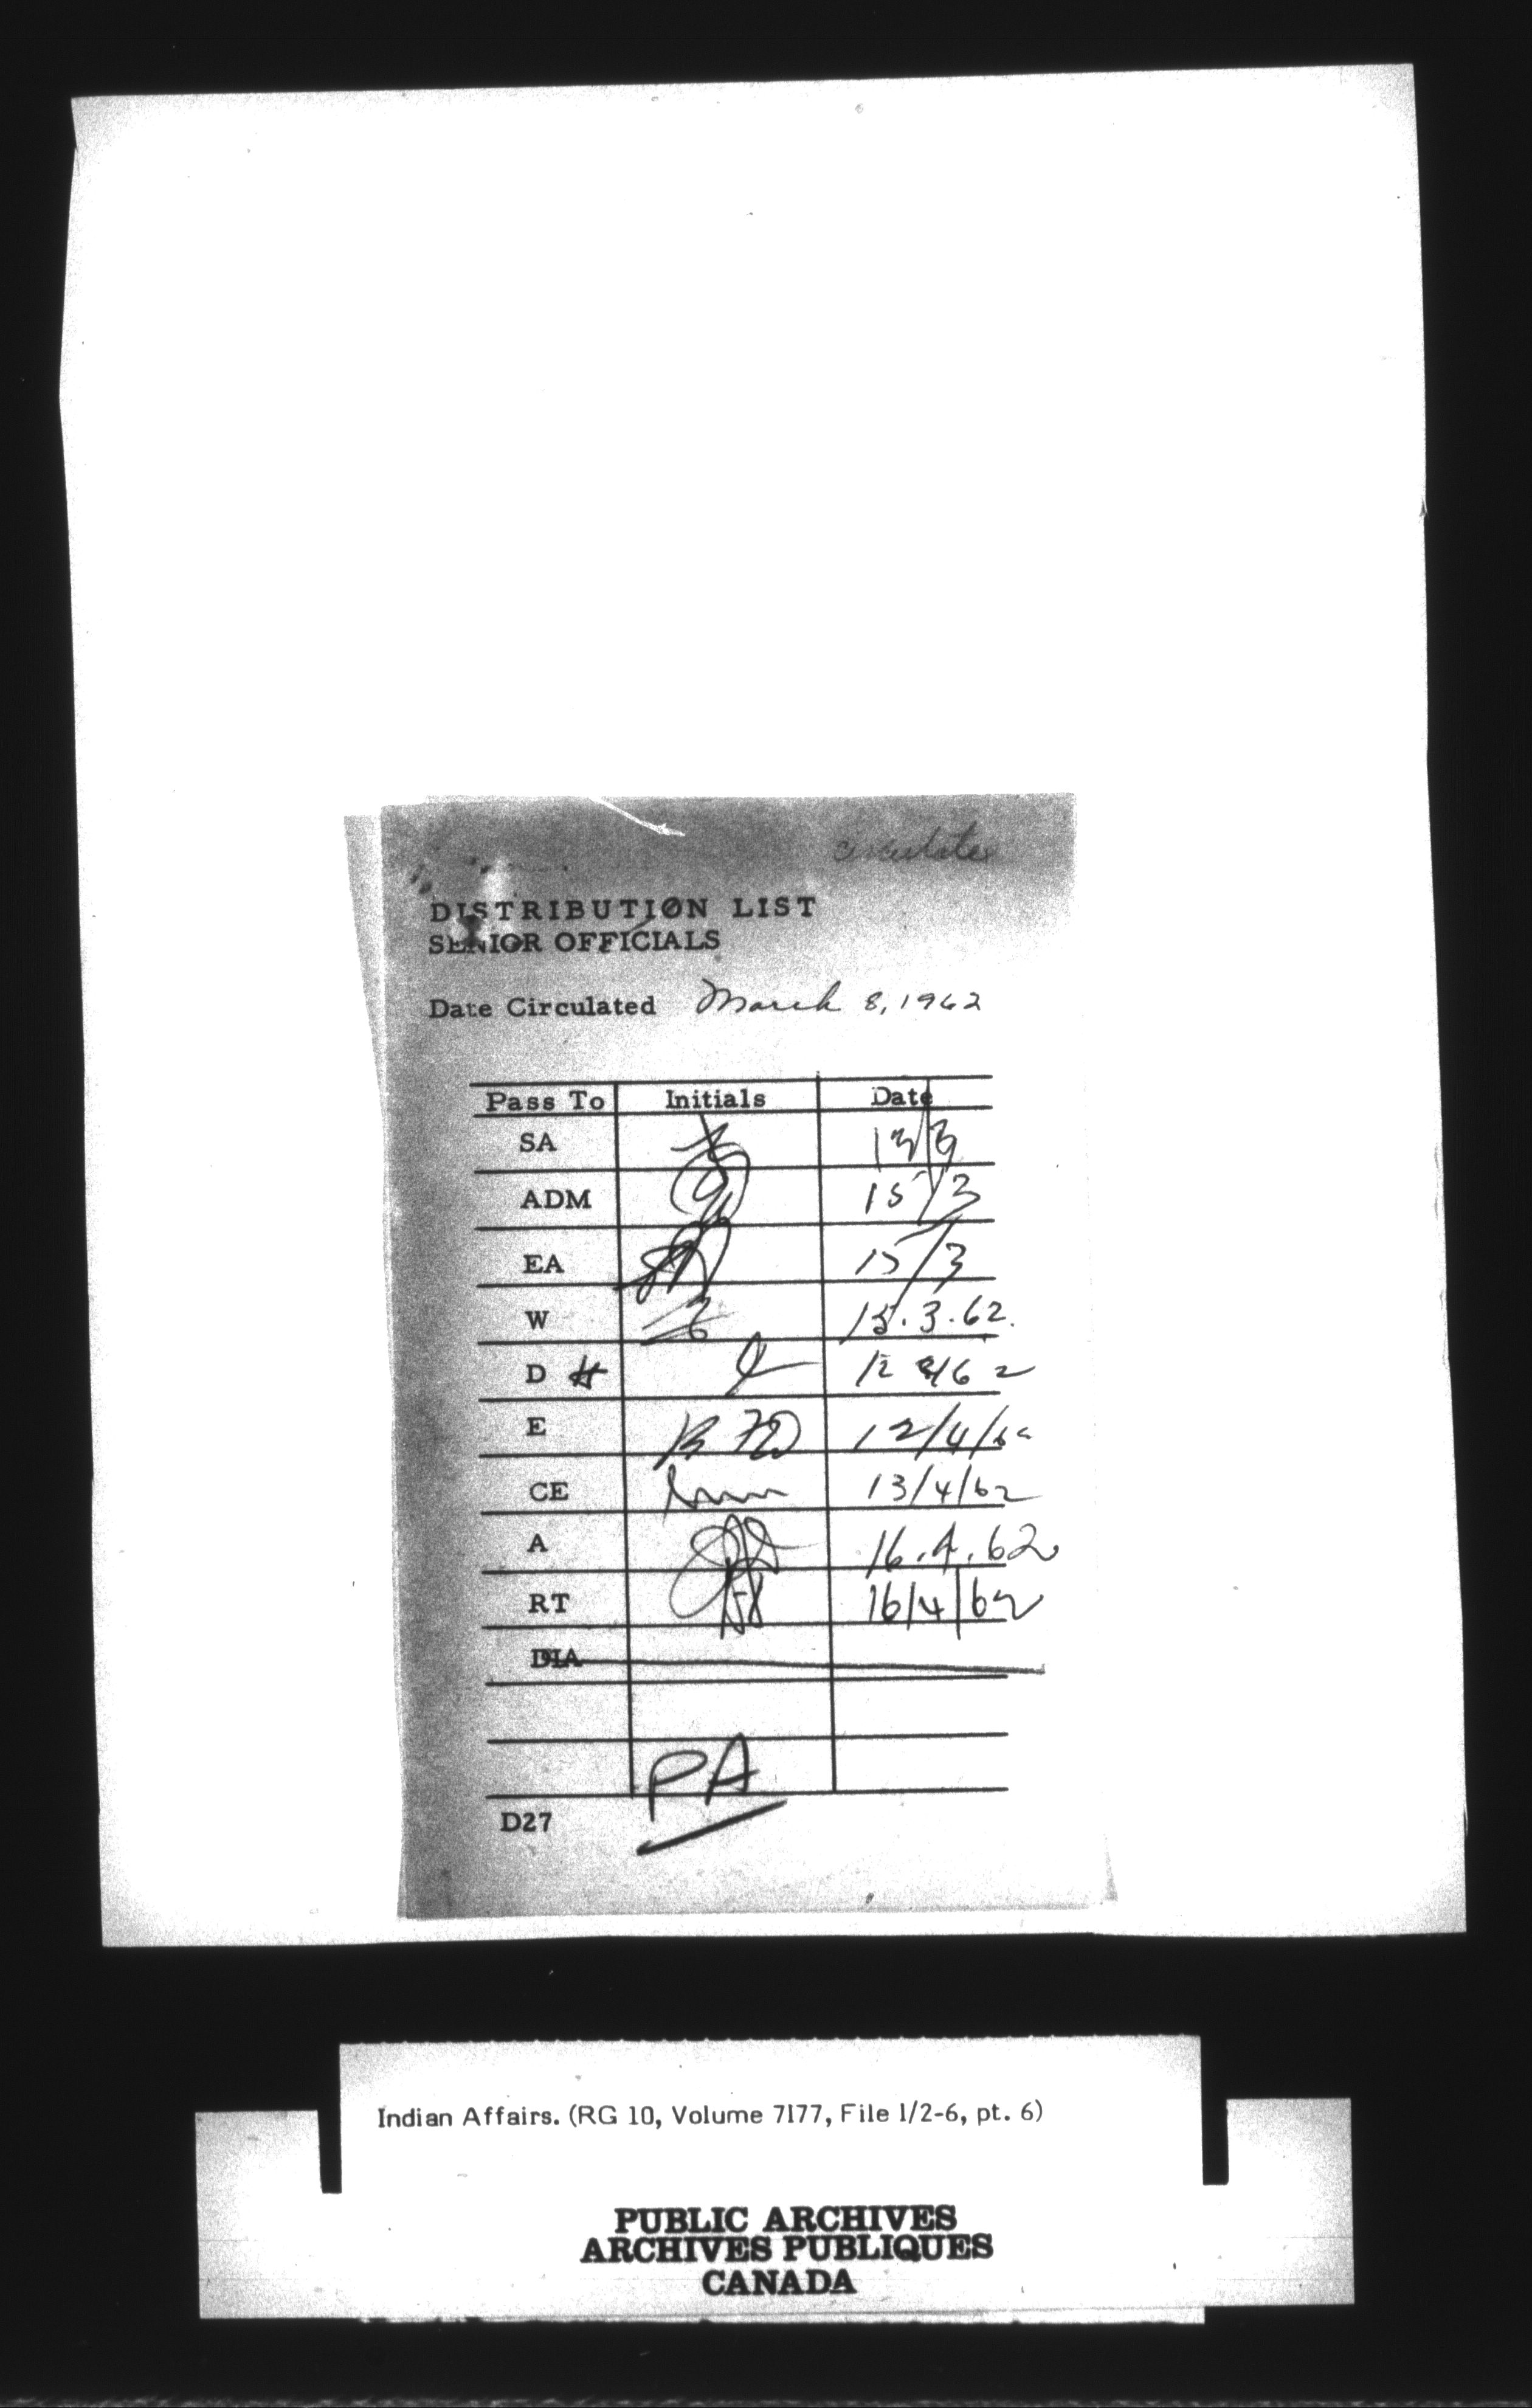 circulate
DISTRIBUTION LIST
SENIOR OFFICIALS
Date Circulated March 8, 1962
Pass To Initials Date
SA 13/3
ADM 15/3
EA 15/3
W 15.3.62.
D
E 12/4/62
CE 13/4/62
A 16.4.62
RT 16/4/62
DIA
PA
D27
Indian Affairs. (RG 10, Volume 7177, File 1/2-6, pt. 6)
PUBLIC ARCHIVES
ARCHIVES PUBLIQUES
CANADA